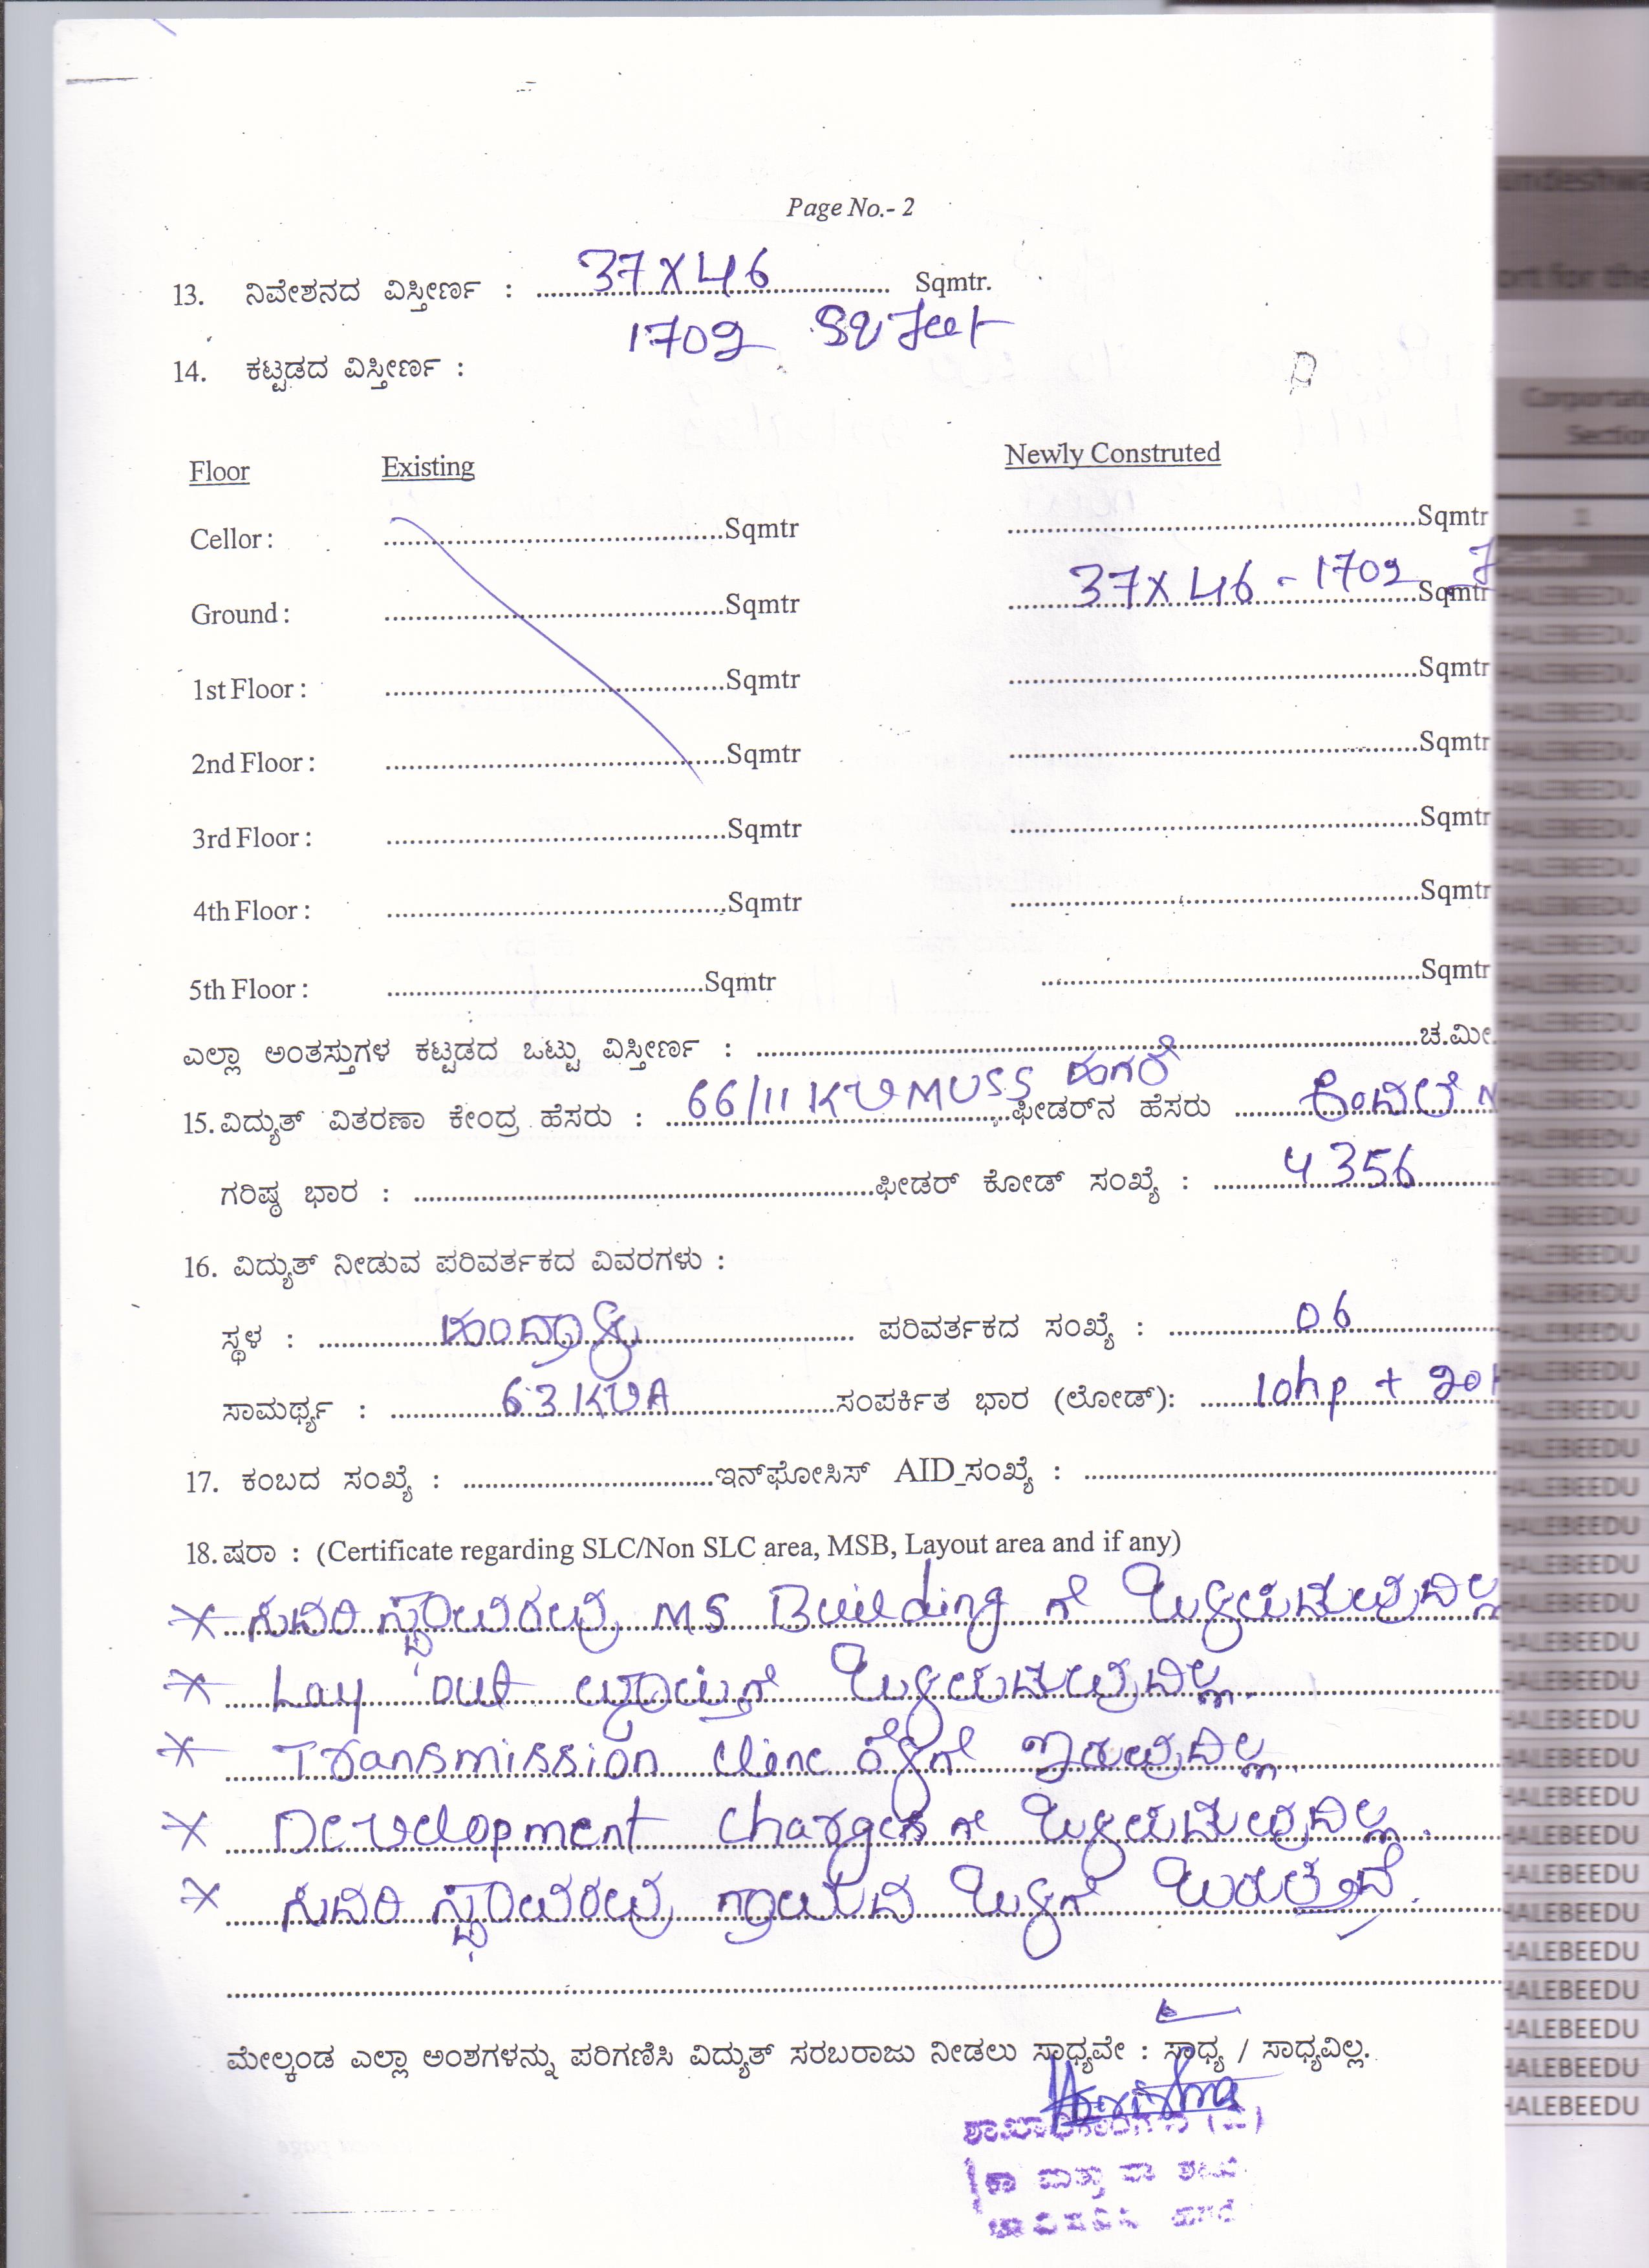 Page No.- 2
13. ನಿವೇಶನದ ವಿಸ್ತೀರ್ಣ : 37 X 46 Sqmtr.
1702 Sq feet
14. ಕಟ್ಟಡದ ವಿಸ್ತೀರ್ಣ :
Floor Existing Newly Construted
Cellor : Sqmtr Sqmtr
Ground : Sqmtr 37 X 46 - 1702 Sqmtr
1st Floor : Sqmtr Sqmtr
2nd Floor : Sqmtr Sqmtr
3rd Floor : Sqmtr Sqmtr
4th Floor : Sqmtr Sqmtr
5th Floor : Sqmtr Sqmtr
ಎಲ್ಲಾ ಅಂತಸ್ತುಗಳ ಕಟ್ಟಡದ ಒಟ್ಟು ವಿಸ್ತೀರ್ಣ : ಚ.ಮೀ.
15. ವಿದ್ಯುತ್ ವಿತರಣಾ ಕೇಂದ್ರ ಹೆಸರು : 66/11 KV MUSS ಹಗರೆ ಫೀಡರ್‌ನ ಹೆಸರು
ಗರಿಷ್ಠ ಭಾರ : ಫೀಡರ್ ಕೋಡ್ ಸಂಖ್ಯೆ : 4356
16. ವಿದ್ಯುತ್ ನೀಡುವ ಪರಿವರ್ತಕದ ವಿವರಗಳು :
ಸ್ಥಳ : ಪರಿವರ್ತಕದ ಸಂಖ್ಯೆ : 06
ಸಾಮರ್ಥ್ಯ : 63 KVA ಸಂಪರ್ಕಿತ ಭಾರ (ಲೋಡ್): 10hp + 20
17. ಕಂಬದ ಸಂಖ್ಯೆ : ಇನ್‌ಫೋಸಿಸ್ AID_ಸಂಖ್ಯೆ :
18. ಷರಾ : (Certificate regarding SLC/Non SLC area, MSB, Layout area and if any)
* ಸುದರಿ ಸ್ಥಾವರವು MS Building ಗೆ ಒಳಪಡುವುದಿಲ್ಲ
* Lay out ವ್ಯಾಪ್ತಿಗೆ ಒಳಪಡುವುದಿಲ್ಲ.
* Transmission line ಕೆಳಗೆ ಇರುವುದಿಲ್ಲ.
* Development charges ಗೆ ಒಳಪಡುವುದಿಲ್ಲ.
* ಸುದರಿ ಸ್ಥಾವರವು ಗ್ರಾಮದ ಒಳಗೆ ಬರುತ್ತದೆ.
ಮೇಲ್ಕಂಡ ಎಲ್ಲಾ ಅಂಶಗಳನ್ನು ಪರಿಗಣಿಸಿ ವಿದ್ಯುತ್ ಸರಬರಾಜು ನೀಡಲು ಸಾಧ್ಯವೇ : ಸಾಧ್ಯ / ಸಾಧ್ಯವಿಲ್ಲ.